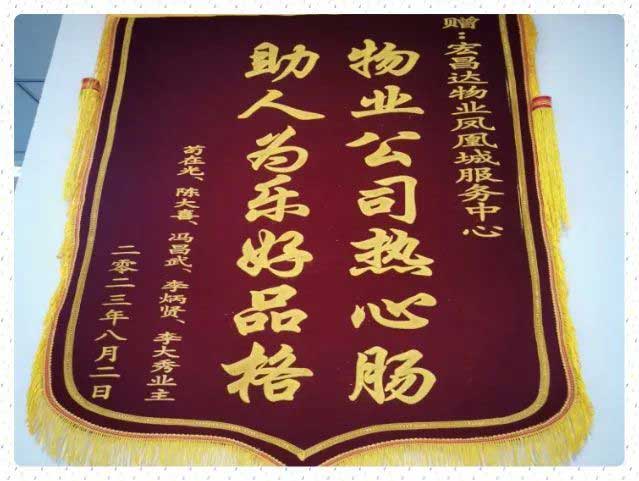 赠：宏昌达物业凤凰城服务中心
物业公司热心肠
助人为乐好品格
苟在光、陈大喜、冯昌武、李炳贤、李大秀业主
二零二三年八月二日